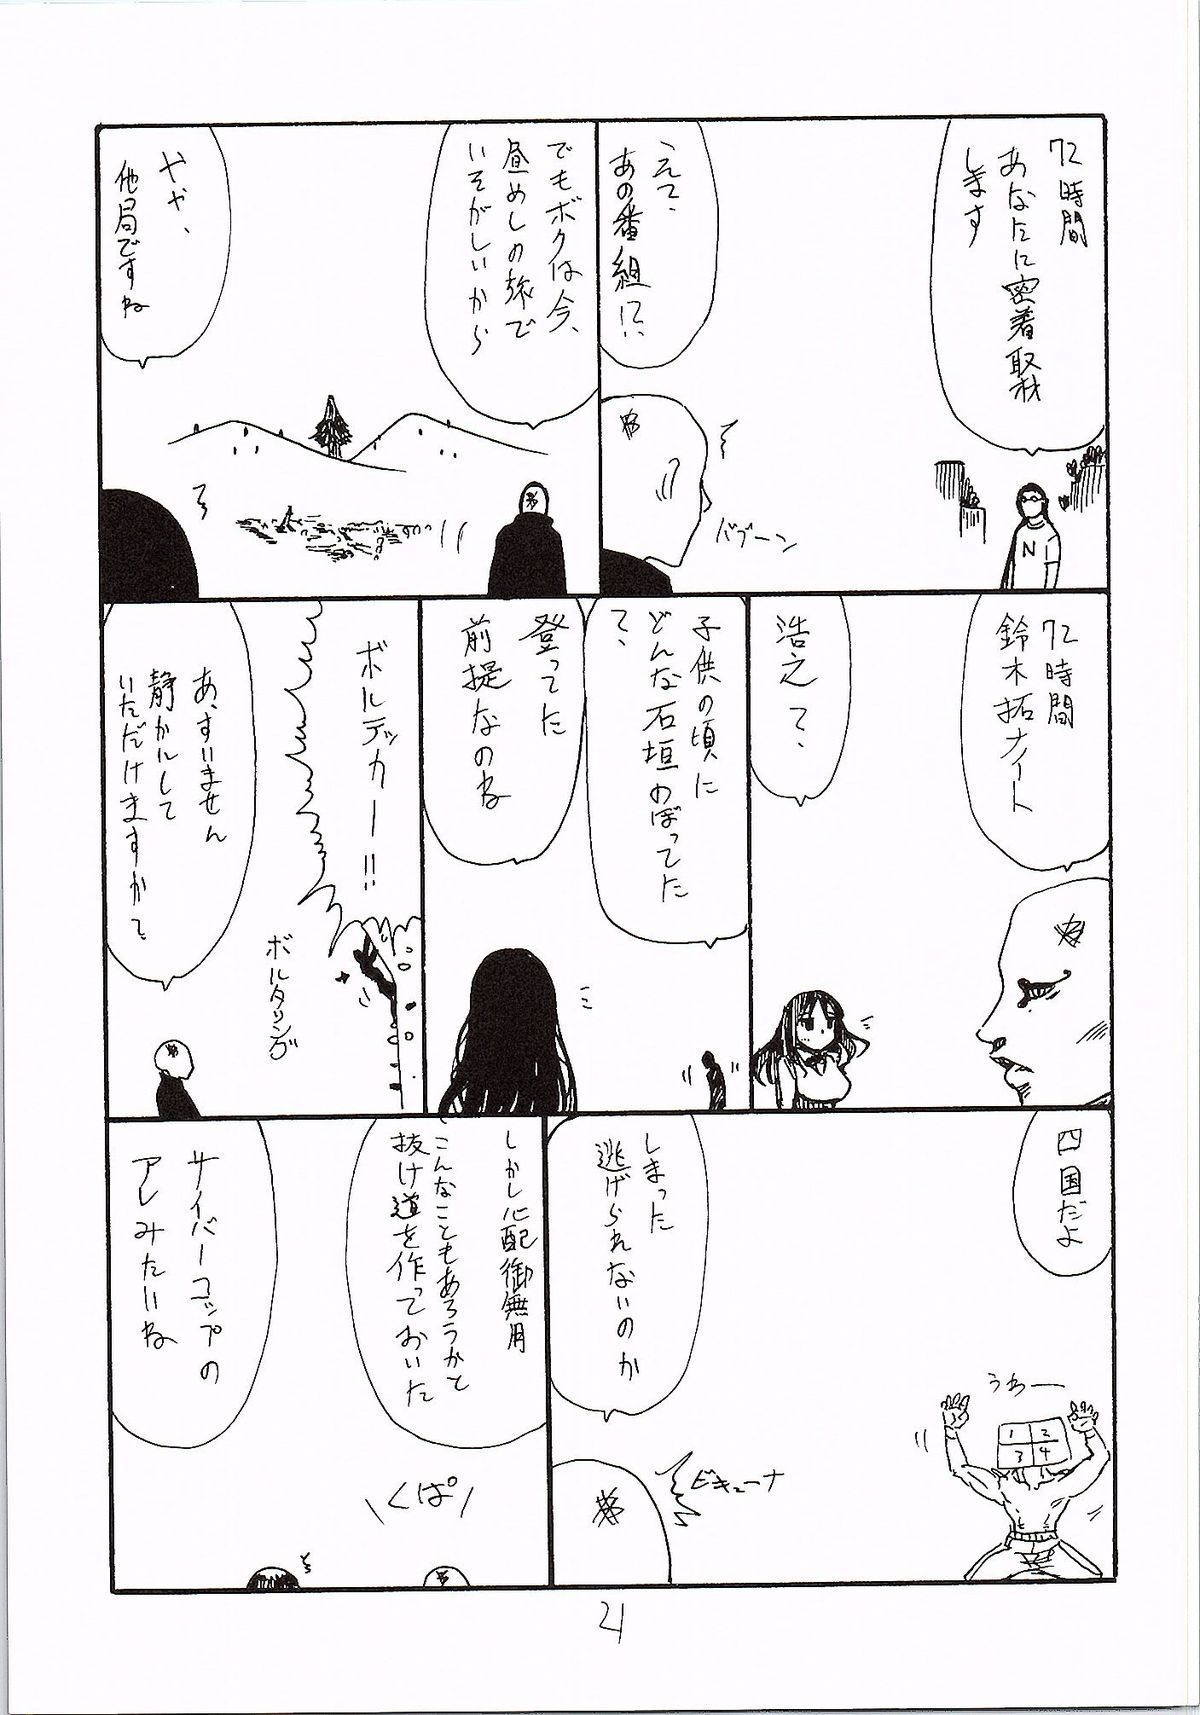 72時間
あなたに密着取材
します
ええっ、
あの番組!?
バブーン
N
でもボクは今、
昼めしの旅で
いそがしいから
やや、
他局ですね
72時間
鈴木拓ナイト
浩之って、
子供の頃に
どんな石垣のぼってた
て、
登ってた
前提なのね
ボルデッカー!!
ボルタリング
あ、すいません
静かにして
いただけますかっ
四国だよ
うわー
1 2
3 4
しまった
逃げられないのか
ビキューナ
しかし心配御無用
こんなこともあろうかと
抜け道を作っておいた
くぱぁ
サイバーコップの
アレみたいね
21